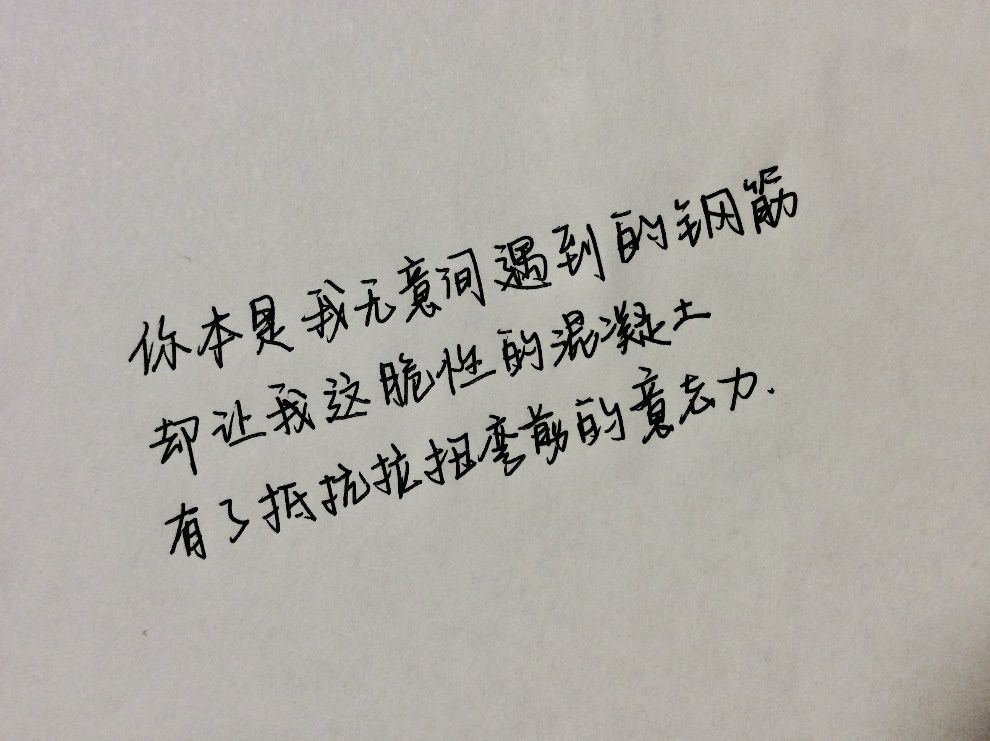 你本是我无意间遇到的钢筋
却让我这脆性的混凝土
有了抵抗拉扭弯剪的意志力.